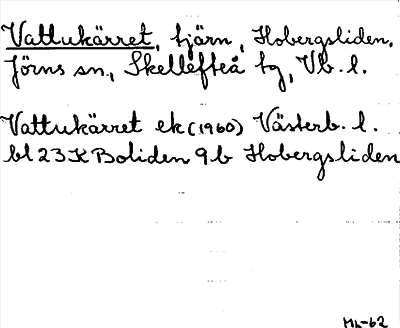 Vattukärret, tjärn, Hobergsliden,
Jörns sn, Skellefteå tg, Vb. l.
Vattukärret ek (1960) Västerb. l.
bl 23 K Boliden 9 b Hobergsliden
Hh-62